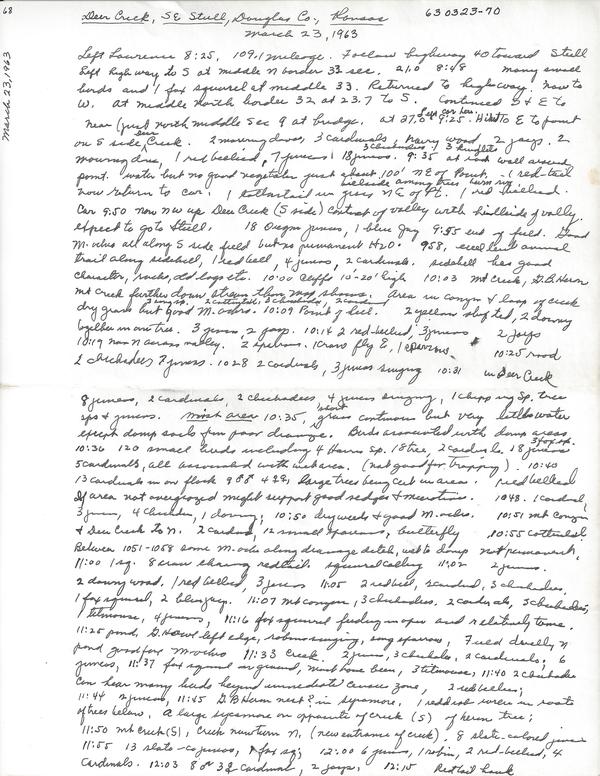 68
March 23, 1963
Deer Creek, SE Stull, Douglas Co., Kansas 630323-70
March 23, 1963
Left Lawrence 8:25, 109.1 mileage. Follow highway 40 toward Stull
Left highway to S at middle N border 33 sec. 21.0 8:48 many small
birds and 1 fox squirrel at middle 33. Returned to highway. now to
W. at middle north border 32 at 23.7 to S. Continued S & E to
near (just north middle Sec 9 at bridge, at 27.0 Left car here 9:25. Hiked to E to point
on S side Deer Creek. 2 mourning doves, 3 cardinals, hairy wood, 2 jays. 2
3 chickadees, 3
mourning dove, 1 red bellied, 7 juncos, 18 juncos. 9:35 at rock wall around
point. water but no good vegetation just about 100' NE of Point, 1 red-tail
hillside among trees
now return to car. 1 cottontail in grass NE of Pt. 1 red bellied.
Car 9:50 now NW up Deer Creek (S side) Contact of valley with hillside of valley.
expect to go to Stull. 18 Oregon juncos, 1 blue jay 9:55 end of field. Good
M. ochro all along S side field but no permanent H2O. 958, excellent animal
trail along sidehill, 1 red bell, 4 juncos, 2 cardinals. sidehill has good
character, rocks, old logs etc. 10:00 Cliffs 10'-20' high 10:03 mt Creek, G.B. Heron
mt Creek further down stream than map shows. Area in canyon & loop of creek
2 cottontails, 3 chickadees, 2 cardinal
dry grass but good M. ochro. 10:09 Point of hill. 2 yellow shafted, 2 downy
together in one tree. 3 juncos, 2 jays. 10:14 2 red-bellied, 3 juncos 2 jays
10:19 now N across valley. 2 sparrows. 1 crow fly E, 10:25 road
2 chickadees 7 juncos. 1028 2 cardinals, 3 juncos singing 10:31 in Deer Creek
8 juncos, 2 cardinals, 2 chickadees, 4 juncos singing, 1 chipping Sp. tree
sps & juncos. moist area 10:35, short grass continuous but very little water
except damp soils from poor drainage. Birds associated with damp areas
3 fox sp.
10:36 120 small birds including 4 Harris Sp. 18 tree, 2 cardinals. 18 juncos
5 cardinals, all associated with wet area. (not good for trapping). 10:40
13 cardinals in one flock 9 ♂♂ 4 ♀♀, large trees being cut in area. 1 red bellied
If area not overgrazed might support good sedges & microtines. 1048. 1 cardinal,
3 juncos, 4 chickadee, 1 downy; 10:50 dry weeds & good M. ochro. 10:51 mt Canyon
& Deer Creek to N. 2 cardinal, 12 small sparrows, butterfly 10:55 cottontail,
Between 1051-1058 some M. ochro along drainage ditch, wet to damp not permanent,
11:00 1 sq. 8 crow chasing redtail. squirrel calling 11:02 2 juncos.
2 downy wood, 1 red bellied, 3 juncos 11:05 2 red bell, 2 cardinal, 3 chickadees,
1 fox squirrel, 2 blue jay. 11:07 mt canyon, 3 chickadees, 2 cardinals, 3 chickadees,
1 titmouse, 4 juncos, 11:16 fox squirrel feeding in open and relatively tame.
11:25 pond, G. Heron left edge, robin singing, song sparrow, 7 wood N
pond good for M. ochro 11:33 Creek. 2 juncos, 3 chickadees, 2 cardinals, 6
juncos, 11:37 fox squirrel on ground, 3 titmouse, 11:40 2 chickadee
Can hear many birds beyond immediate census zone, 2 red bellies;
11:44 2 juncos, 11:45 G.B Heron nest? in sycamore, 1 redheaded wren in roots
of trees below. A large sycamore on opposite of creek (S) of heron tree;
11:50 mt creek (S), Creek now turn N. (new entrance of creek). 8 slate-colored juncos
11:55 13 slate-co juncos, 1 fox sq; 12:00 6 juncos, 1 robin, 2 red-bellied, 4
Cardinals. 12:03 8 ♂ 3 ♀ Cardinal, 2 jays, 12:15 Redtail hawk